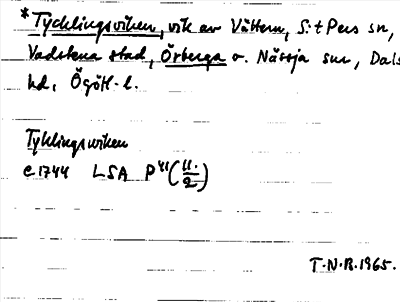 *Tycklingsviken, vik av Vättern, S:t Pers sn,
Vadstena stad, Örberga o. Nässja snr, Dals
hd, Ögötl. l.
Tyklingswiken
c 1744 LSA P 41 (11./2)
T.N.B. 1965.